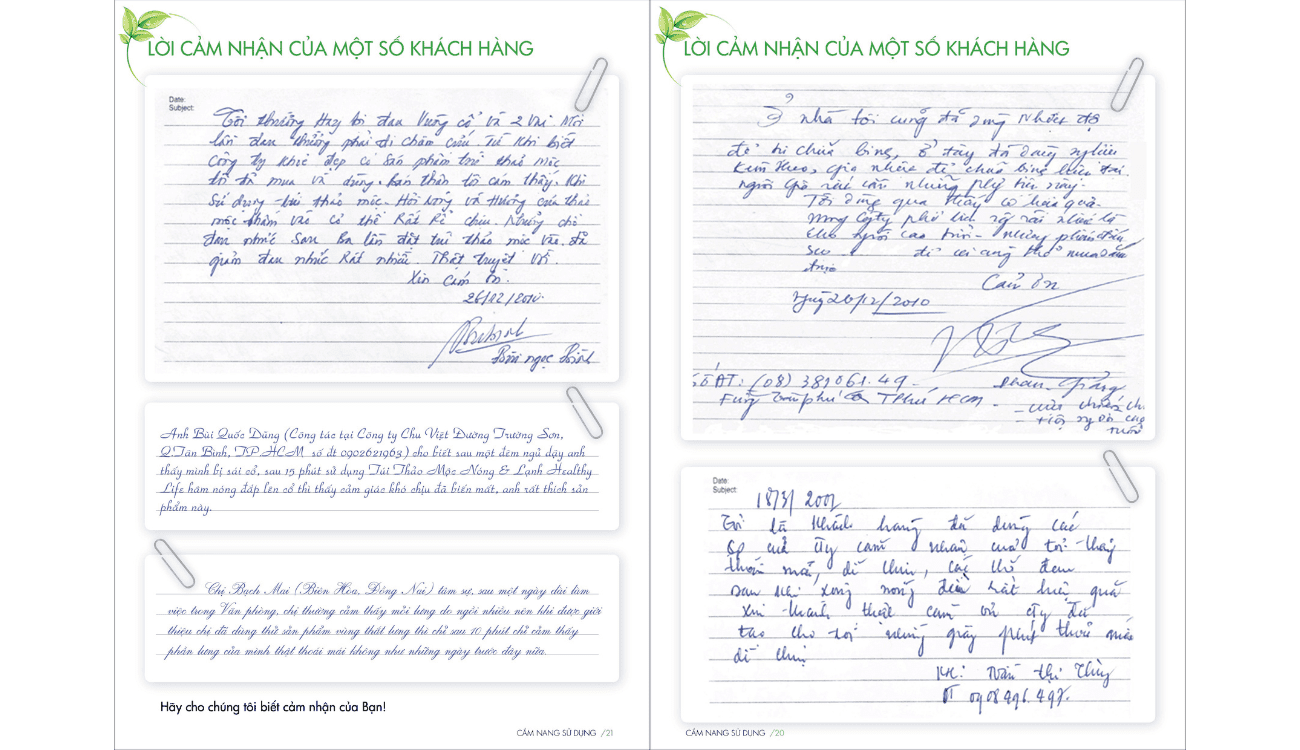 LỜI CẢM NHẬN CỦA MỘT SỐ KHÁCH HÀNG
Date:
Subject:
Tôi thường Hay bị đau Vướng cổ và 2 Vai Mỗi
lần đau thường phải đi châm cứu. Từ Khi biết
Công ty Khỏe đẹp có Sản phẩm túi thảo mộc
tôi đã mua và dùng. bản thân tôi cảm thấy. Khi
Sử dụng túi thảo mộc. Hơi nóng và Hương của thảo
mộc thấm vào cơ thể Rất Rễ chịu. Những chỗ
đau nhức Sau Ba lần đặt túi thảo mộc vào. đã
giảm đau nhức Rất nhiều. Thật tuyệt vời.
Xin Cám ơn.
26/12/2010.
Bùi ngọc Bình
Anh Bùi Quốc Dũng (Công tác tại Công ty Chu Việt Đường Trường Sơn,
Q.Tân Bình, TP.HCM số đt 0902621963) cho biết sau một đêm ngủ dậy anh
thấy mình bị sái cổ, sau 15 phút sử dụng Túi Thảo Mộc Nóng & Lạnh Healthy
Life hâm nóng đắp lên cổ thì thấy cảm giác khó chịu đã biến mất, anh rất thích sản
phẩm này.
Chị Bạch Mai (Biên Hòa, Đồng Nai) tâm sự, sau một ngày dài làm
việc trong Văn phòng, chị thường cảm thấy mỏi lưng do ngồi nhiều nên khi được giới
thiệu chị đã dùng thử sản phẩm vùng thắt lưng thì chỉ sau 10 phút chị cảm thấy
phần lưng của mình thật thoải mái không như những ngày trước đây nữa.
Hãy cho chúng tôi biết cảm nhận của Bạn!
CẨM NANG SỬ DỤNG /21
LỜI CẢM NHẬN CỦA MỘT SỐ KHÁCH HÀNG
Ở nhà tôi cũng đã dùng
người già rất cần những
Tôi dùng qua thấy có hiệu quả.
mong Cty phổ biến rộng rãi nhất là
cho người cao tuổi - những
để ai cũng có thể mua
được
Cảm ơn
Ngày 26/12/2010
Số ĐT: (08) 381061.49 -
Date:
Subject:
18/3/2007
Tôi là khách hàng đã dùng các
sp của cty cảm nhận của tôi thấy
thoải mái, dễ chịu,
sau khi xong nóng hiệu quả
xin thành thật cảm ơn cty đã
tạo cho tôi những giây phút thoải mái
dễ chịu
KH: Trần thị Thùy
ĐT 0908496.497.
CẨM NANG SỬ DỤNG /20